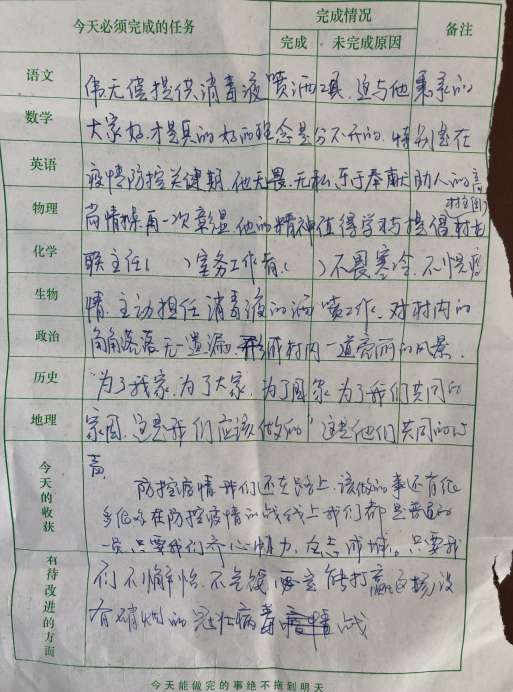 今天必须完成的任务
完成情况
备注
完成
未完成原因
语文
伟无偿提供消毒液喷洒工具.这与他秉承的
数学
大家好,才是真的好的理念是分不开的.特别是在
英语
疫情防控关键期.他无畏.无私.乐于奉献助人的高
物理
尚情操再一次彰显.他的精神值得学习与提倡.村
化学
联主任( )室务工作者( )不畏寒冷.不惧疫
生物
情.主动担任消毒液的洒喷工作.对村内的
政治
角角落落无一遗漏.形成村内一道亮丽的风景.
历史
"为了我家.为了大家.为了国家为了我们共同的
地理
家园.这是我们应该做的"这是他们共同的心
今天的收获
声.
防控疫情我们还在路上.该做的事还有很
多但是在防控疫情的战线上我们都是普通的
一员.只要我们齐心协力,众志成城。只要我
有待改进的方面
们不懈怠.不气馁 就能打赢这场没
有硝烟的冠状病毒战
今天能做完的事绝不拖到明天